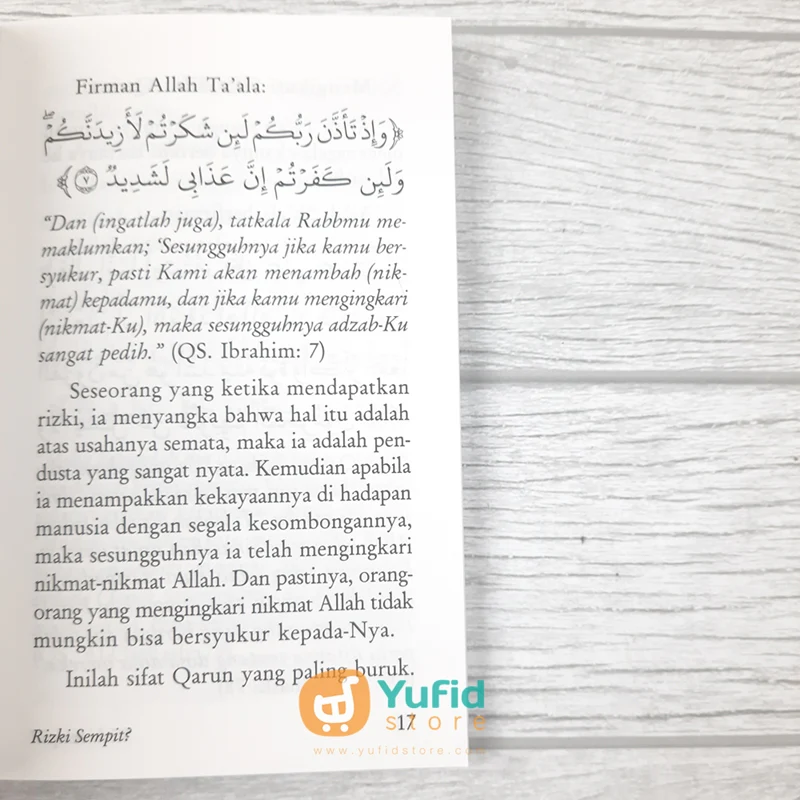 Firman Allah Ta'ala:
﴿وَإِذْ تَأَذَّنَ رَبُّكُمْ لَئِن شَكَرْتُمْ لَأَزِيدَنَّكُمْ ۖ
وَلَئِن كَفَرْتُمْ إِنَّ عَذَابِى لَشَدِيدٌ ٧﴾
"Dan (ingatlah juga), tatkala Rabbmu me-
maklumkan; 'Sesungguhnya jika kamu ber-
syukur, pasti Kami akan menambah (nik-
mat) kepadamu, dan jika kamu mengingkari
(nikmat-Ku), maka sesungguhnya adzab-Ku
sangat pedih." (QS. Ibrahim: 7)
Seseorang yang ketika mendapatkan
rizki, ia menyangka bahwa hal itu adalah
atas usahanya semata, maka ia adalah pen-
dusta yang sangat nyata. Kemudian apabila
ia menampakkan kekayaannya di hadapan
manusia dengan segala kesombongannya,
maka sesungguhnya ia telah mengingkari
nikmat-nikmat Allah. Dan pastinya, orang-
orang yang mengingkari nikmat Allah tidak
mungkin bisa bersyukur kepada-Nya.
Inilah sifat Qarun yang paling buruk.
Rizki Sempit?
17
Yufid
store
www.yufidstore.com